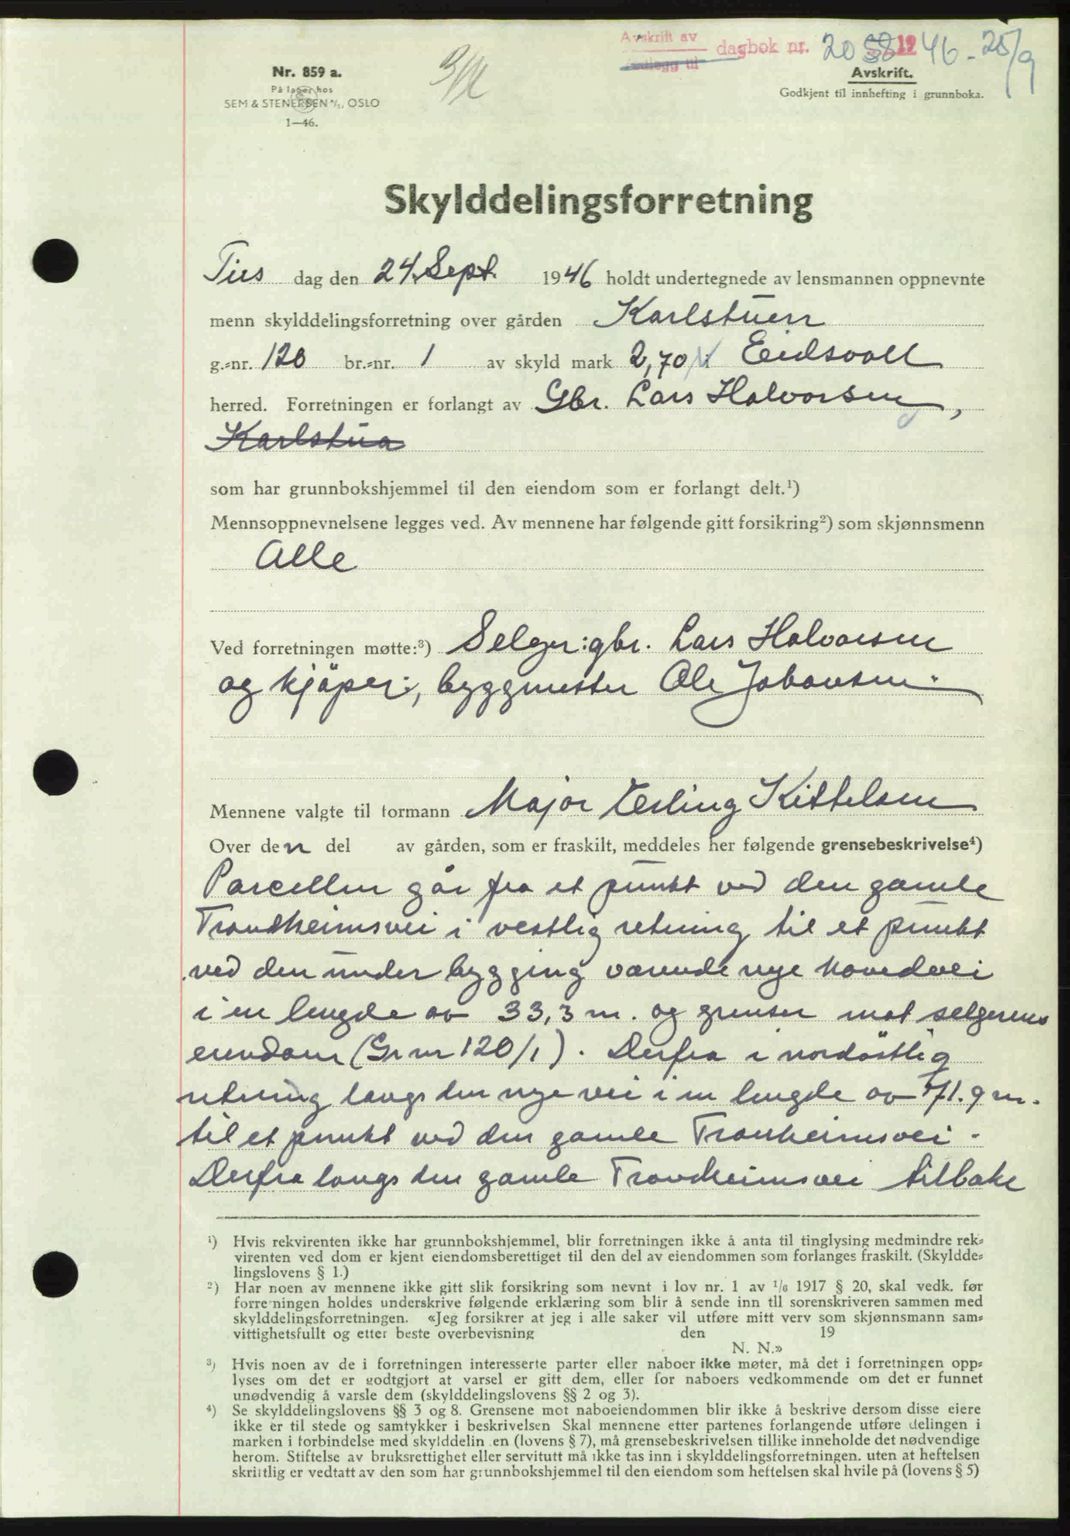 Avskrift av
dagbok nr. 2058 1946 - 25/9
Nr. 859 a.
På lager hos
SEM & STENERSEN A/S, OSLO
1—46.
Avskrift.
Godkjent til innhefting i grunnboka.
Skylddelingsforretning
Tirs dag den 24. Sept. 1946 holdt undertegnede av lensmannen oppnevnte
menn skylddelingsforretning over gården Karlstuen
g.-nr. 120 br.-nr. 1 av skyld mark 2,70 i Eidsvoll
herred. Forretningen er forlangt av Gbr. Lars Halvorsen,
Karlstua
som har grunnbokshjemmel til den eiendom som er forlangt delt.¹)
Mennsoppnevnelsene legges ved. Av mennene har følgende gitt forsikring²) som skjønnsmenn
Alle
Ved forretningen møtte:³) Selger: gbr. Lars Halvorsen
og kjöper:, byggmester Ole Johansen.
Mennene valgte til formann Major Erling Kittelsen
Over den del av gården, som er fraskilt, meddeles her følgende grensebeskrivelse⁴)
Parcellen går fra et punkt ved den gamle
Trondheimsvei i vestlig retning til et punkt
ved den under bygging værende nye hovedvei
i en lengde av 33,3 m. og grenser mot selgerens
eiendom (Gr nr 120/1). Derfra i nordöstlig
retning langs den nye vei i en lengde av 71.9 m.
til et punkt ved den gamle Tronheimsvei.
Derfra langs den gamle Trondheimsvei tilbake
¹) Hvis rekvirenten ikke har grunnbokshjemmel, blir forretningen ikke å anta til tinglysing medmindre rek-
virenten ved dom er kjent eiendomsberettiget til den del av eiendommen som forlanges fraskilt. (Skyldde-
lingslovens § 1.)
²) Har noen av mennene ikke gitt slik forsikring som nevnt i lov nr. 1 av 1/6 1917 § 20, skal vedk. før
forretningen holdes underskrive følgende erklæring som blir å sende inn til sorenskriveren sammen med
skylddelingsforretningen. «Jeg forsikrer at jeg i alle saker vil utføre mitt verv som skjønnsmann sam-
vittighetsfullt og etter beste overbevisning den 19
N. N.»
³) Hvis noen av de i forretningen interesserte parter eller naboer ikke møter, må det i forretningen opp-
lyses om det er godtgjort at varsel er gitt dem, eller for naboers vedkommende om det er funnet
unødvendig å varsle dem (skylddelingslovens §§ 2 og 3).
⁴) Se skylddelingslovens §§ 3 og 8. Grensene mot naboeiendommen blir ikke å beskrive dersom disse eiere
ikke er til stede og samtykker i beskrivelsen Skal mennene etter partenes forlangende utføre delingen i
marken i forbindelse med skylddelin en (lovens § 7), må grensebeskrivelsen tillike inneholde det nødvendige
herom. Stiftelse av bruksrettighet eller servitutt må ikke tas inn i skylddelingsforretningen. uten at heftelsen
skriftlig er vedtatt av den som har grunnbokshjemmel til den eiendom som heftelsen skal hvile på (lovens § 5)